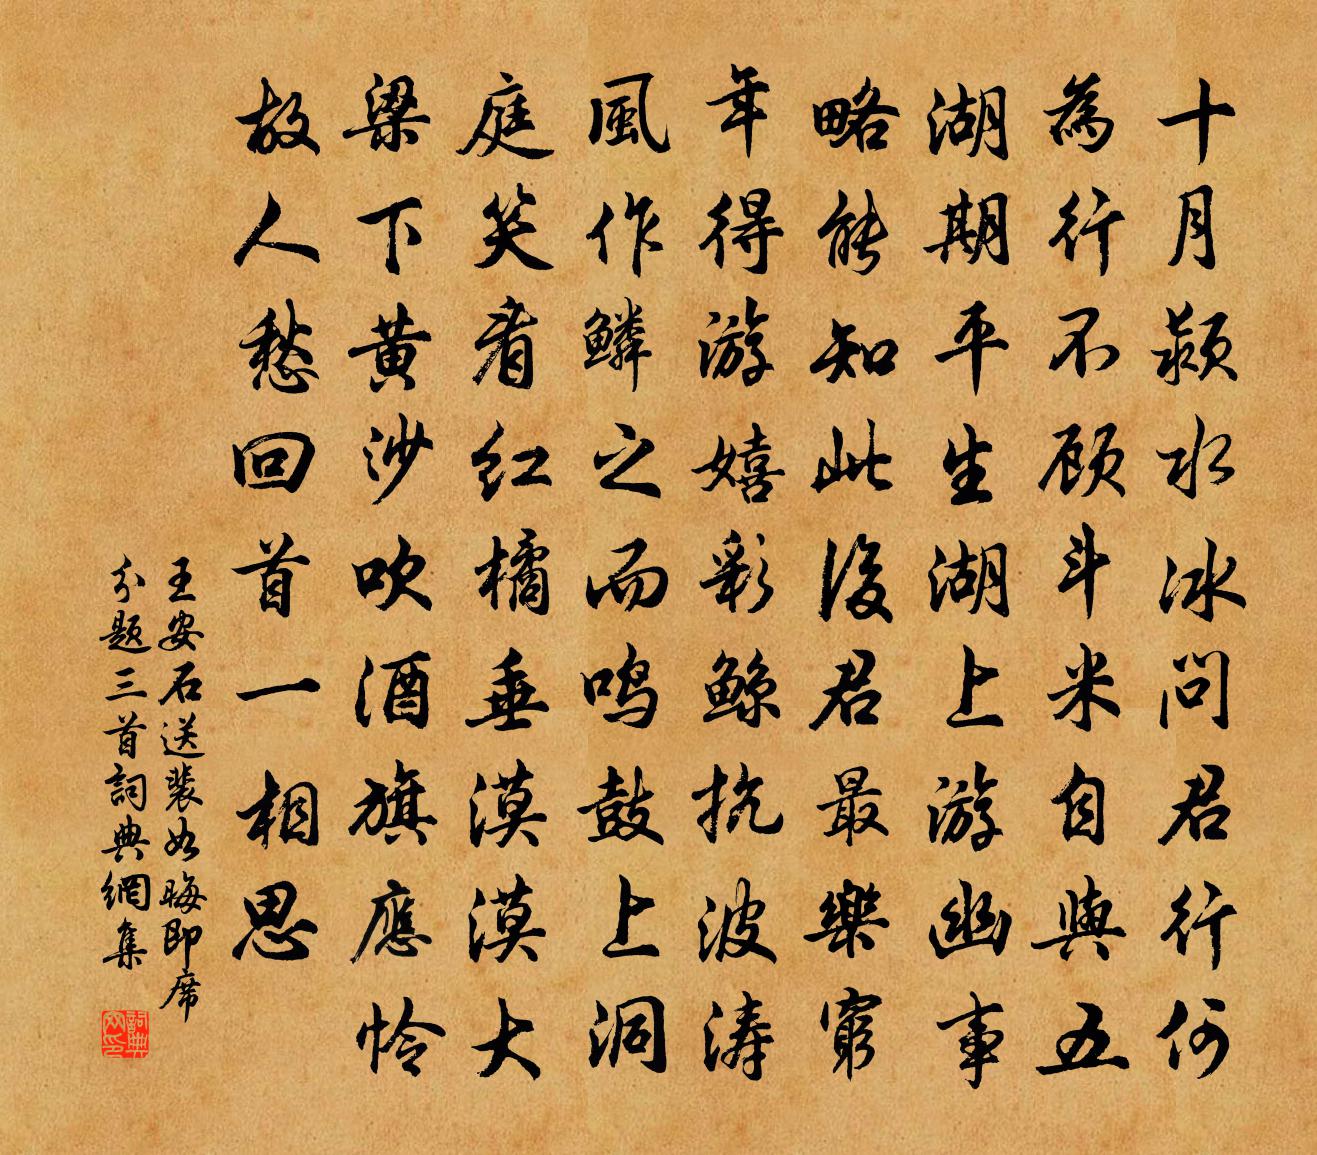 十月颍水冰问君行何
為行不顾斗米自與五
湖期平生湖上游幽事
略能知此後君最樂窮
年得游嬉彩鲸抗波涛
風作鳞之而鸣鼓上洞
庭笑看红橘垂漠漠大
梁下黄沙吹酒旗應怜
故人愁回首一相思
王安石送裴如晦即席
分题三首詞典網集
詞典
网印